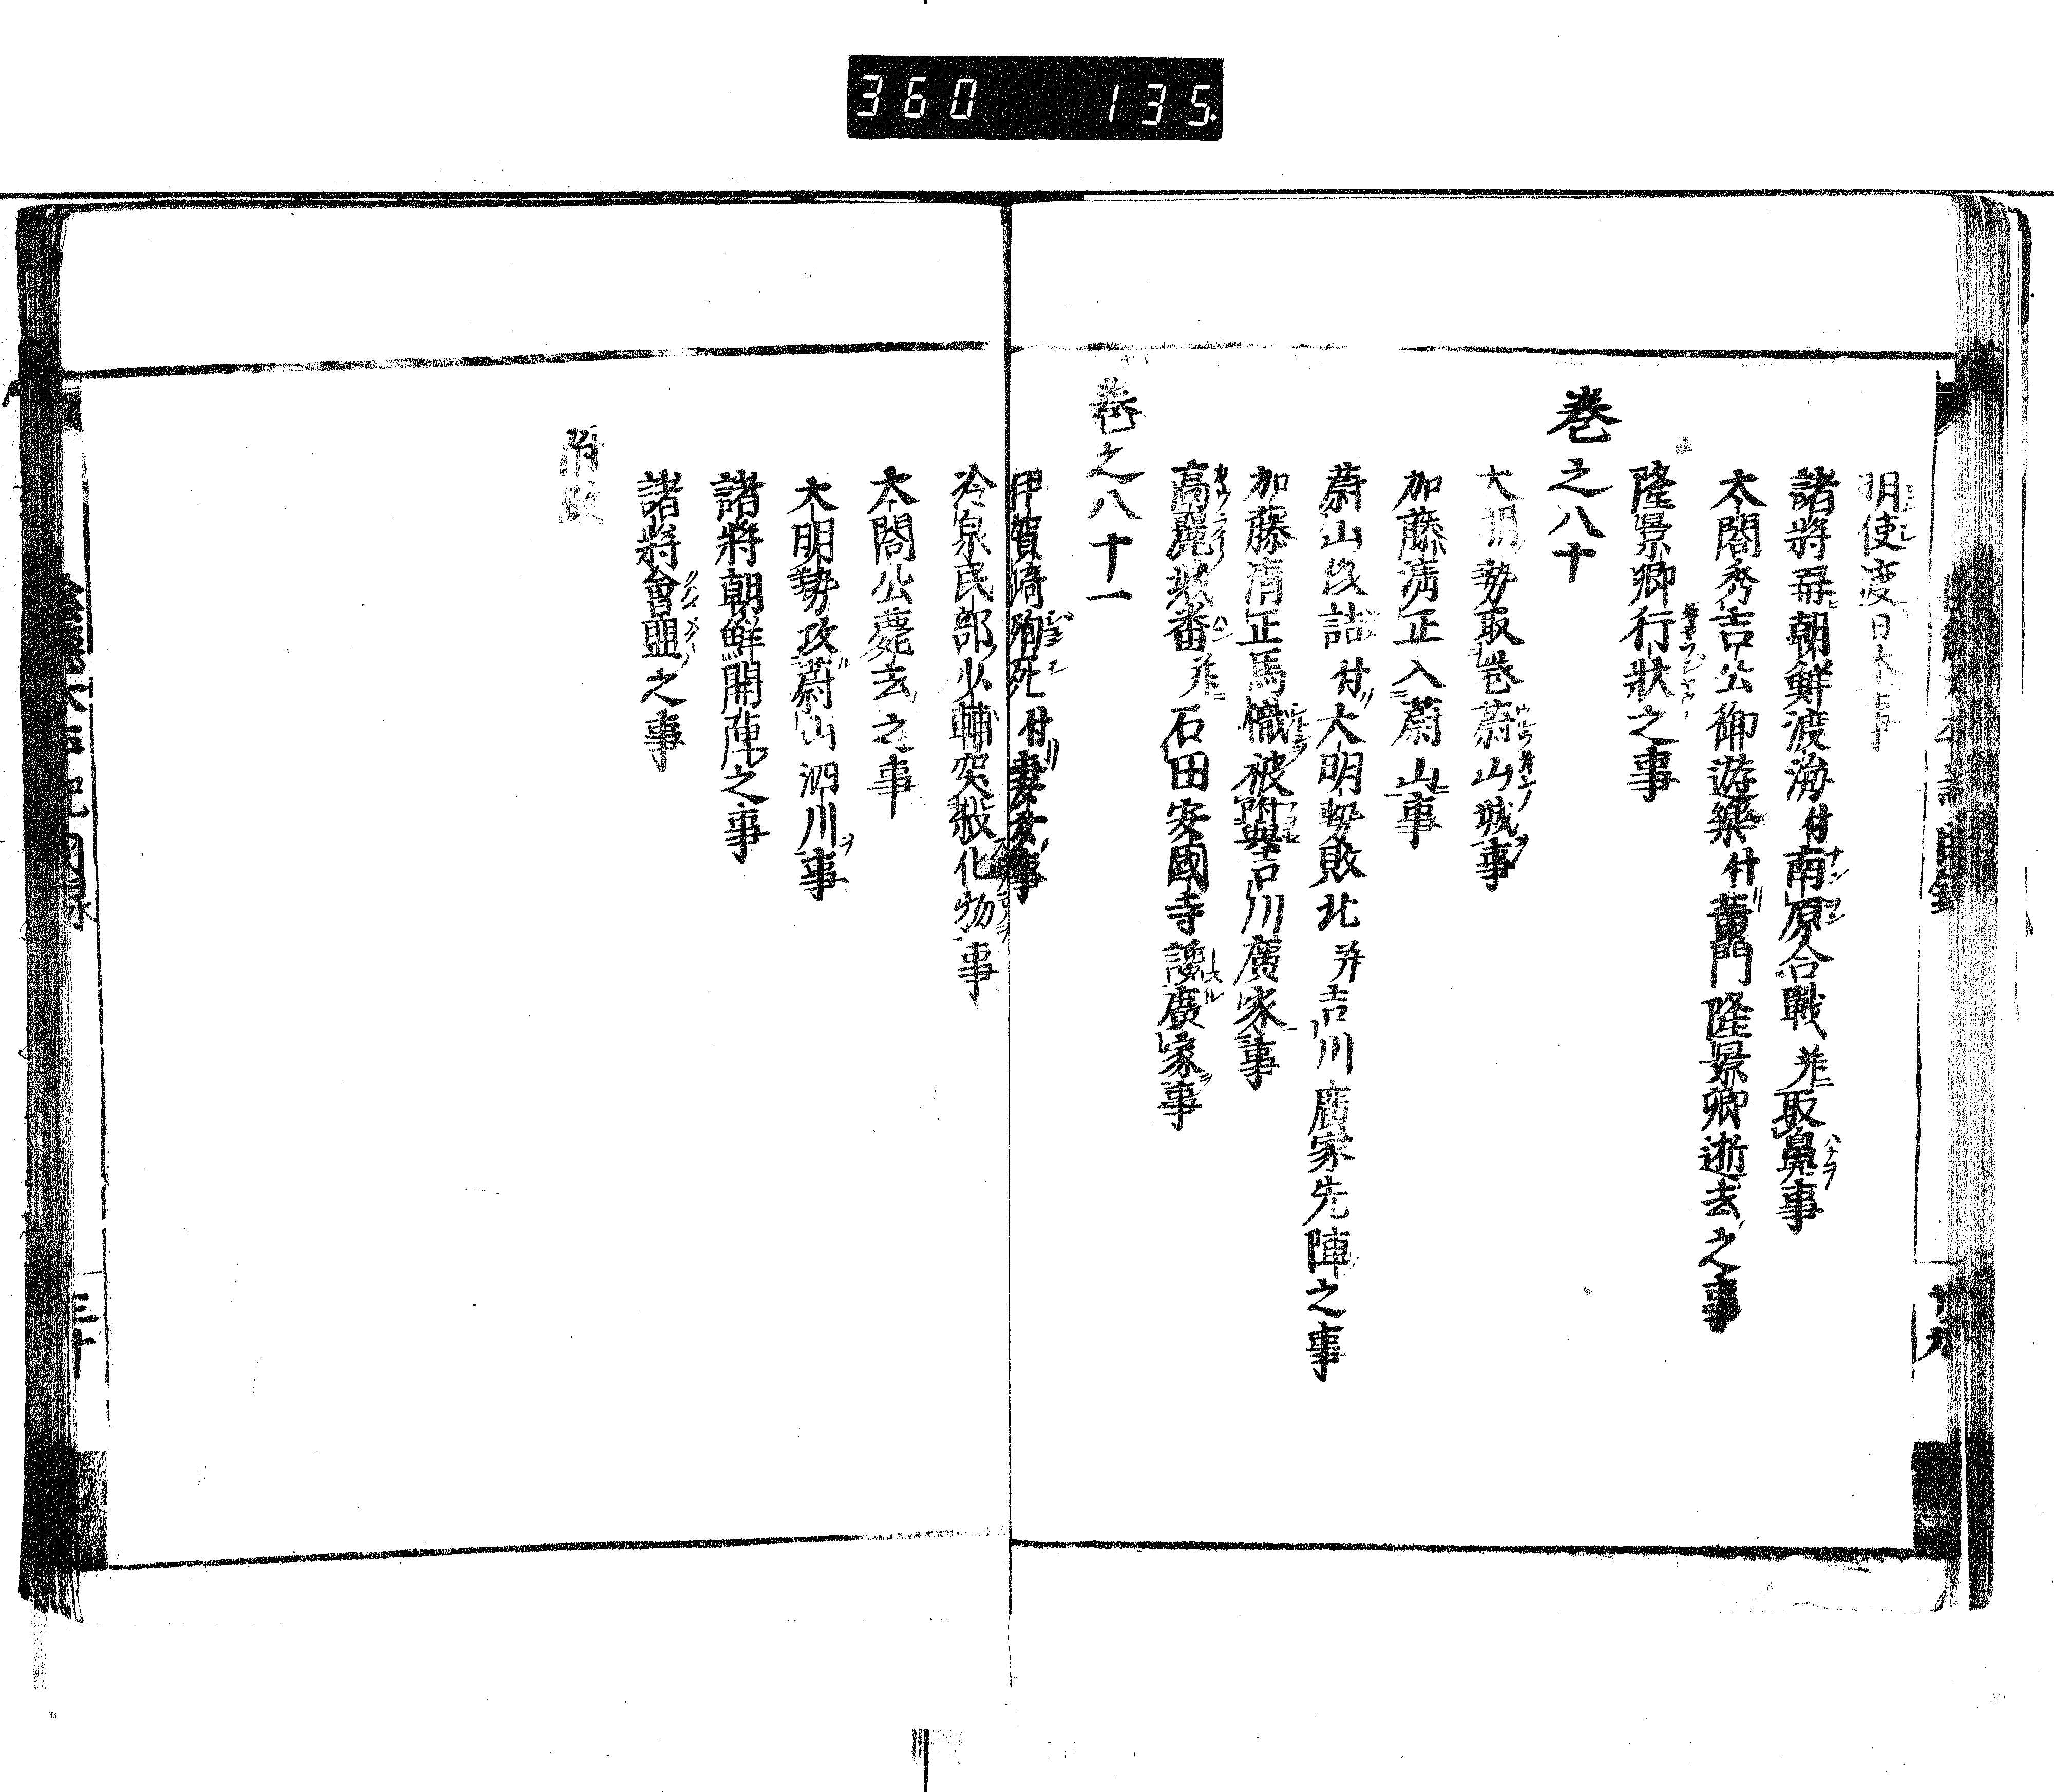 360 135
明使度日本事
諸將再朝鮮渡海付南原合戰并取鼻事
太閤秀吉公御遊築付黄門隆景卿逝去之事
隆景卿行状之事
巻之八十
大明勢取巻蔚山城事
加藤清正入蔚山事
蔚山後詰付大明勢敗北并吉川廣家先陣之事
加藤清正馬幟被附與吉川廣家事
高麗城番并石田安國寺讒廣家事
巻之八十一
伊賀崎殉死付妻女事
冷泉民部少輔突殺化物事
太閤公薨去之事
大明勢攻蔚山泗川事
諸將朝鮮開陣之事
諸將會盟之事
附
三十